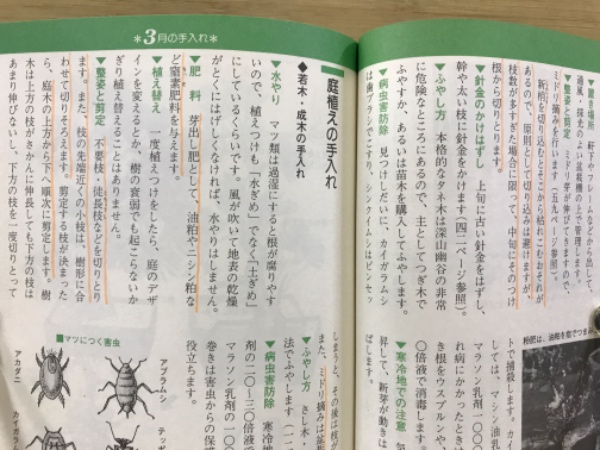 ＊3月の手入れ＊
▼置き場所 軒下やフレームなどから出して、
通風・採光のよい盆栽棚の上で管理します。
▼整姿と剪定 ミドリ芽が伸びてきますので、
ミドリ摘みを行います(五九ページ参照)。
新梢を切り込むとそこから枯れこむおそれが
あるので、原則として切り込みは避けますが、
枝数が多すぎた場合に限って、中旬にそのつけ
根から切りとります。
▼針金のかけはずし 上旬に古い針金をはずし、
幹や太い枝に針金をかけます(四二ページ参照)。
▼ふやし方 本格的なタネ木は深山幽谷の非常
に危険なところにあるので、主としてつぎ木で
ふやすか、あるいは苗木を購入してふやします。
▼病虫害防除 見つけしだいに、カイガラムシ
は歯ブラシでこすり、シンクイムシはピンセッ
粉肥は、油粕を指でつまみ
トで捕殺します。カイ
しては、マシン油乳
マラソン乳剤一〇〇
れ病にかかったときは
き根をウスプルンや、
〇倍液で消毒します。
▼寒冷地での注意
昇して、新芽が動きは
ばします。
庭植えの手入れ
◆若木・成木の手入れ
▼水やり マツ類は過湿にすると根が腐りやす
いので、植えつけも「水ぎめ」でなく「土ぎめ」
にしているくらいです。風が吹いて地表の乾燥
がとくにはげしくなければ、水やりはしません。
▼肥 料 芽出し肥として、油粕やニシン粕な
ど窒素肥料を与えます。
▼植え替え 一度植えつけをしたら、庭のデザ
インを変えるとか、樹の衰弱でも起こらないか
ぎり植え替えることはありません。
▼整姿と剪定 不要枝・徒長枝などを切りとり
ます。また、枝の先端近くの小枝は、樹形に合
わせて切りそろえます。剪定する枝が決まった
ら、庭木の上方から下へ順次に剪定します。樹
木は上方の枝がさかんに伸長しても下方の枝は
あまり伸びないし、下方の枝を一度切りとって
しまうと、その後は枝が
また、ミドリ摘みは盆
▼ふやし方 さし木・
法でふやします(一二
▼病虫害防除 寒冷地
剤の二〇〜三〇倍液で
マラソン乳剤の一〇〇
巻きは害虫からの保護
役立ちます。
■マツにつく害虫
アブラムシ
アカダニ
テッポ
カイガラム